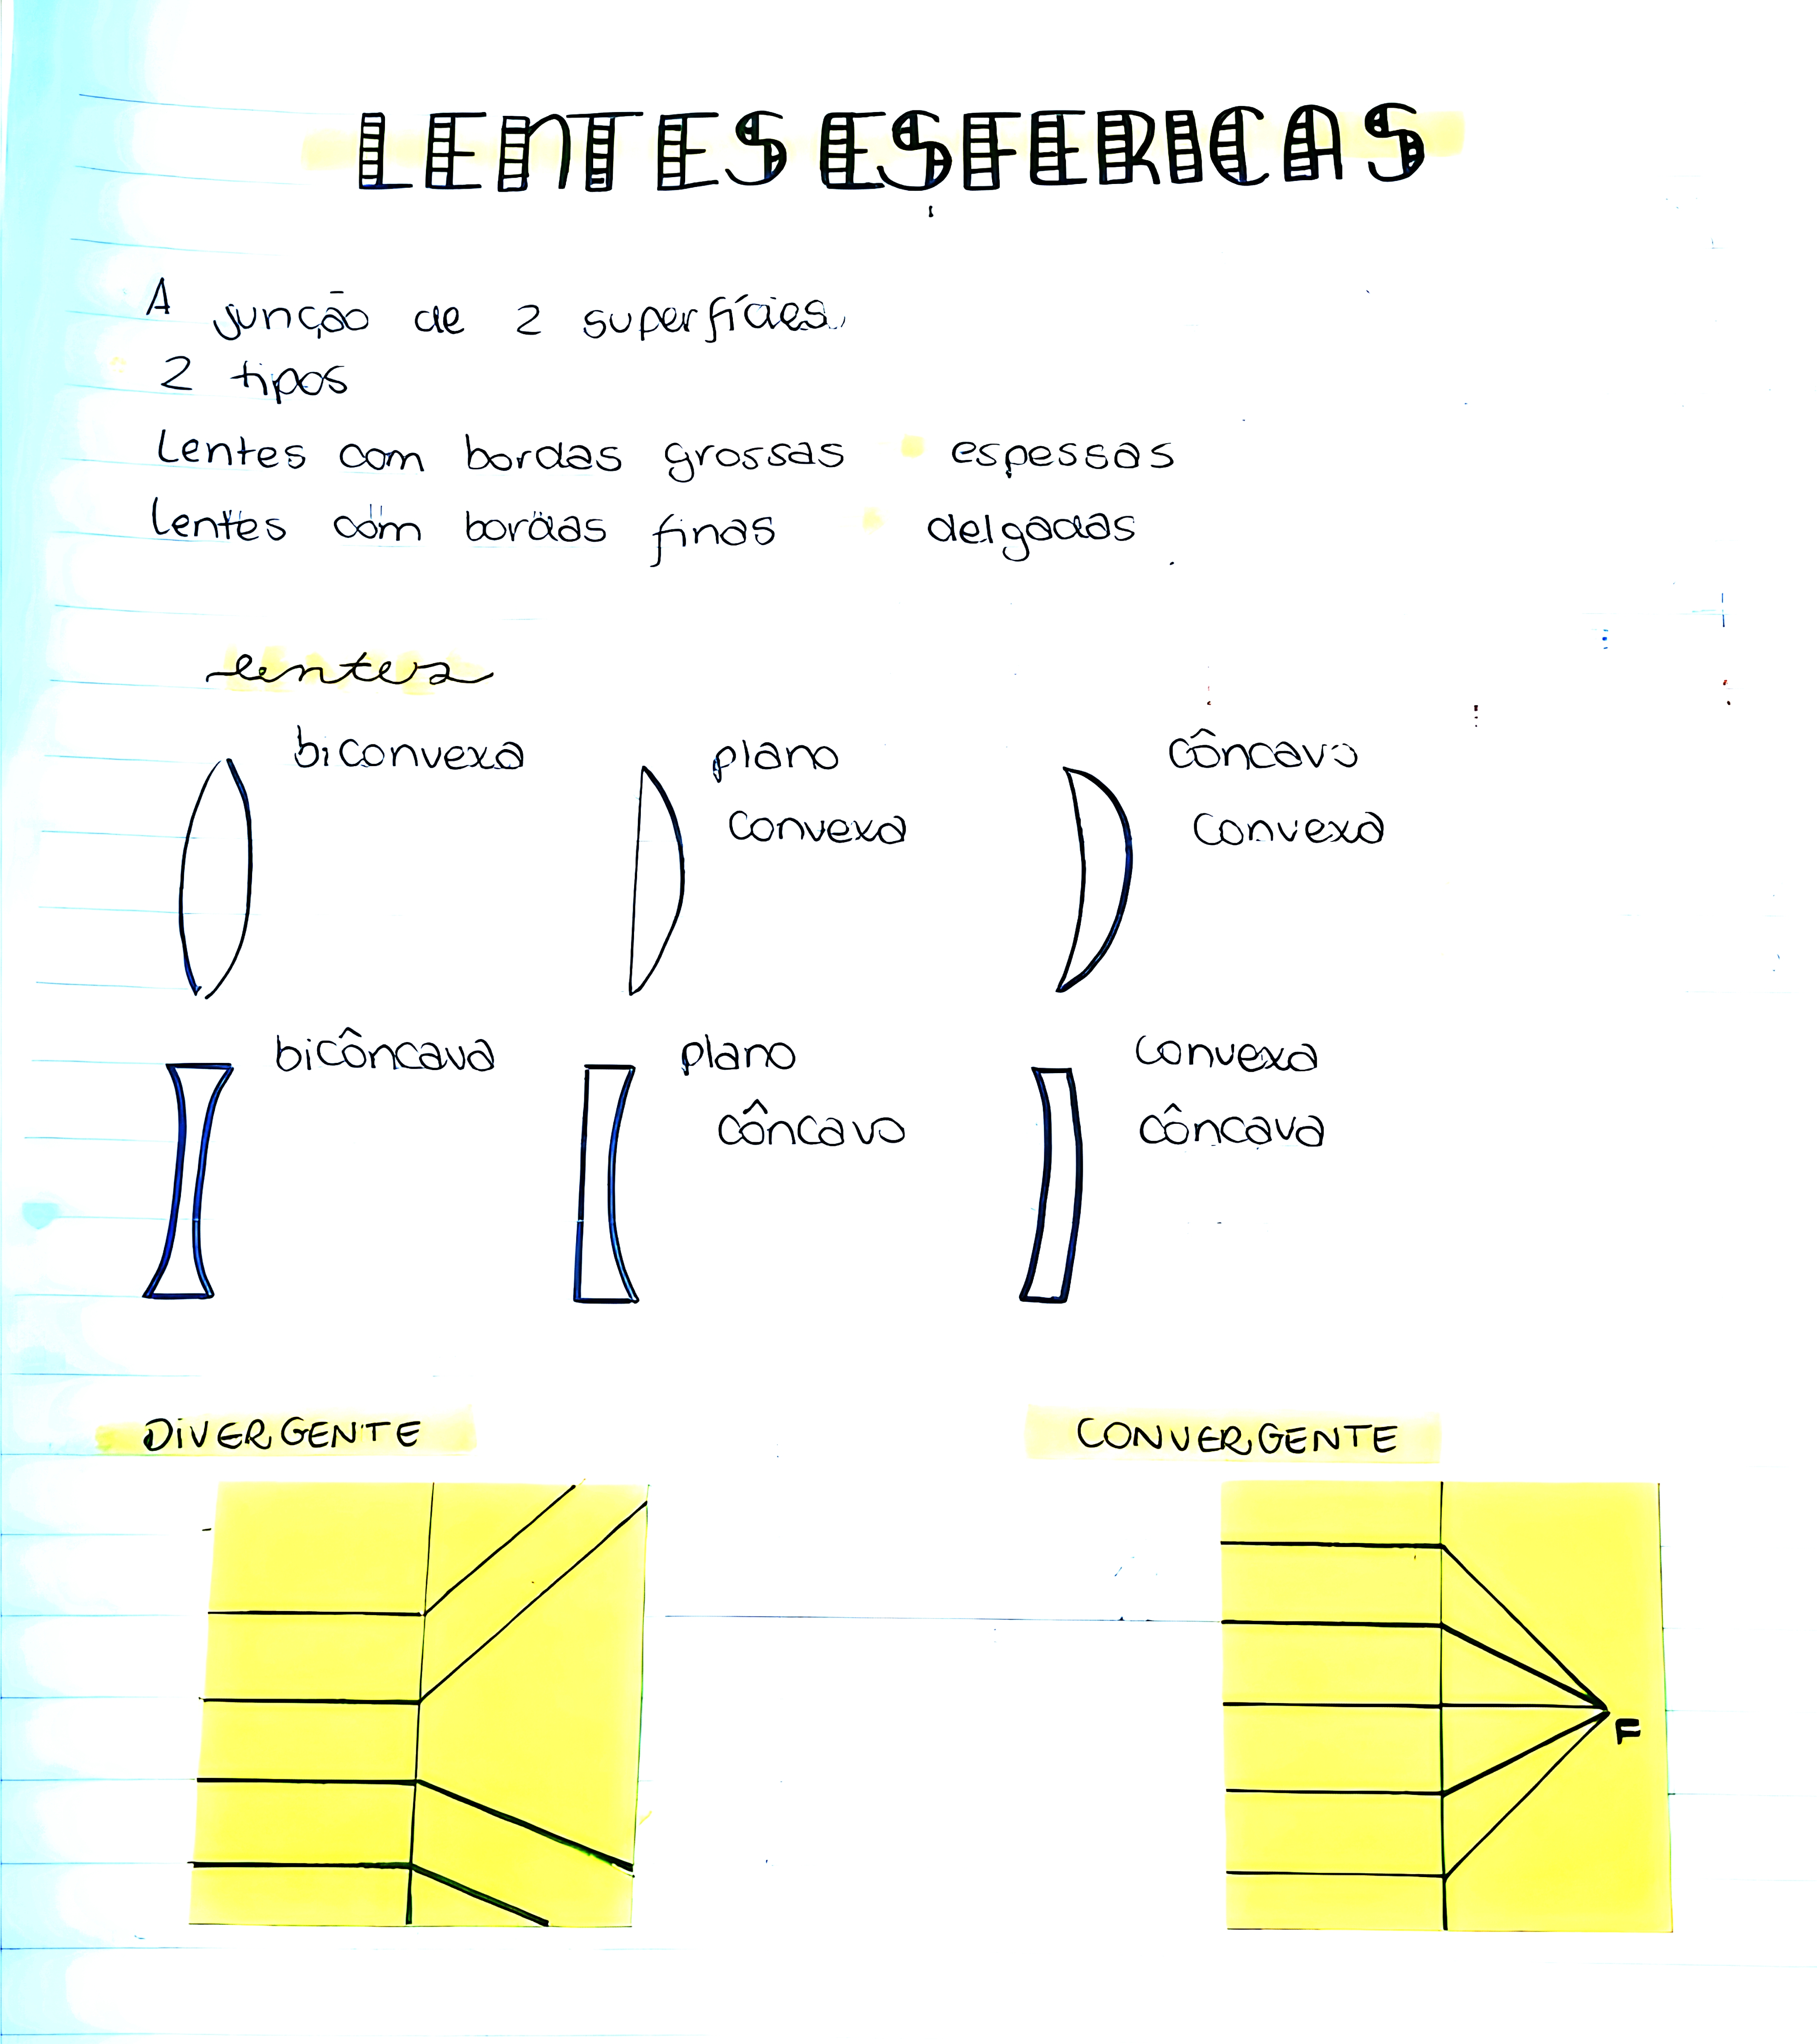 LENTES ESFERICAS
A junção de 2 superfícies
2 tipos
Lentes com bordas grossas espessas
lentes com bordas finas delgadas
lentes
biconvexa plano côncavo
convexa convexa
bicôncava plano convexa
côncavo côncava
DIVERGENTE CONVERGENTE
F